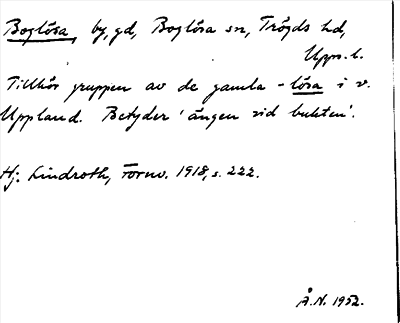 Boglösa, by, gd, Boglösa sn, Trögds hd,
Upps. l.
Tillhör gruppen av de gamla -lösa i v.
Uppland. Betyder 'ängen vid bukten'.
Hj. Lindroth, Fornv. 1918, s. 222.
Å.N. 1952.